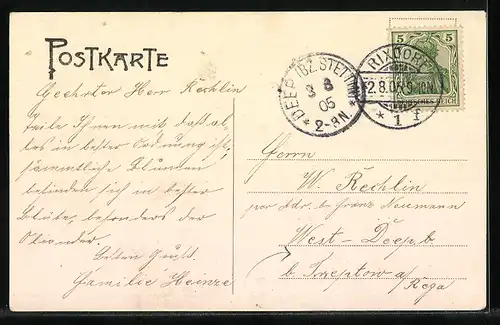 POSTKARTE
Geehrter Herr Rechlin
Teile Ihnen mit daß al-
les in bester Ordnung ist,
sämmtliche Blumen
befinden sich in bester
Blüte, besonders der
Oleander.
Besten Gruß.
Familie Heinze
DEEP (BZ. STETTIN)
3 8
05
* 2-8N. *
RIXDORF
2.8.05
* 1 f
5 5
DEUTSCHES REICH
Herrn
W. Rechlin
per Adr. b Franz Neumann
West-Deep b.
b Treptow a/
Rega